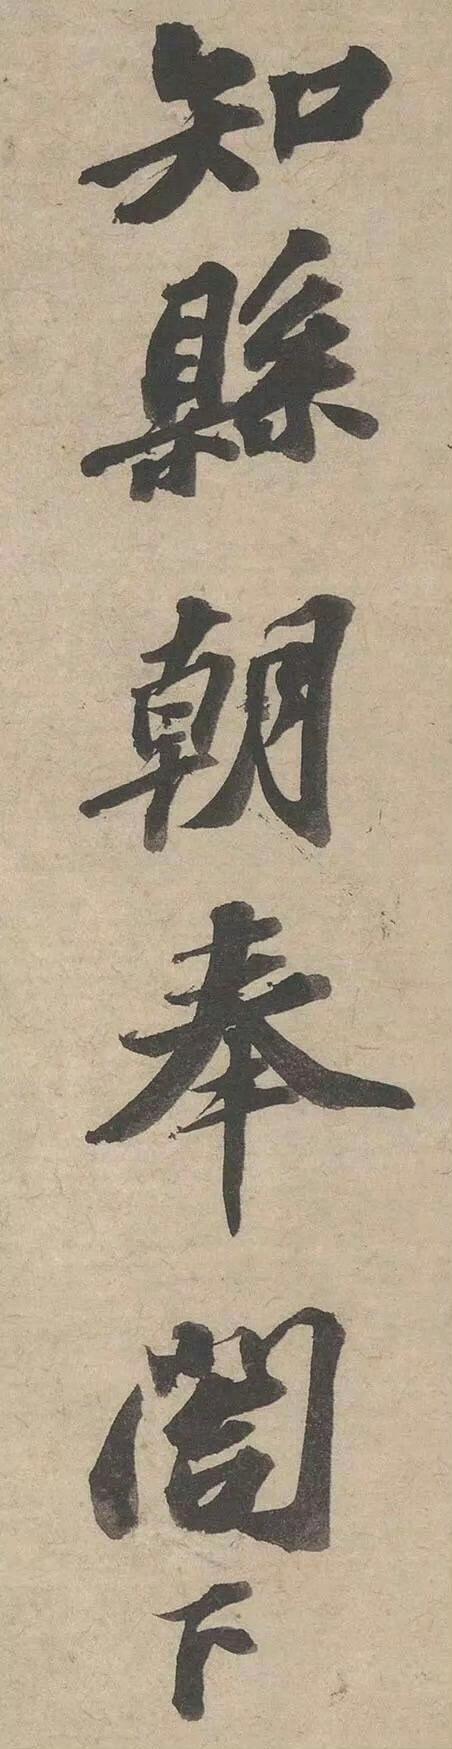 知縣朝奉閤下